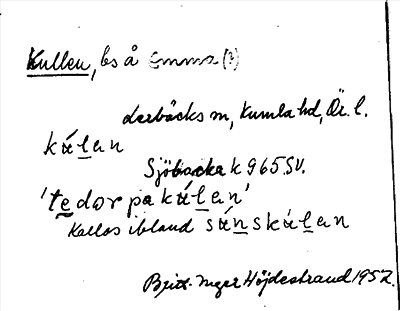 Kullen, bs å Emma (?)
Lerbäcks sn, Kumla hd, Ör. l.
kúlan
Sjöbacka k 965.SV.
'tedar pa kúlan'
Kallas ibland súnskúlan
Britt-Inger Höjdestrand 1952.